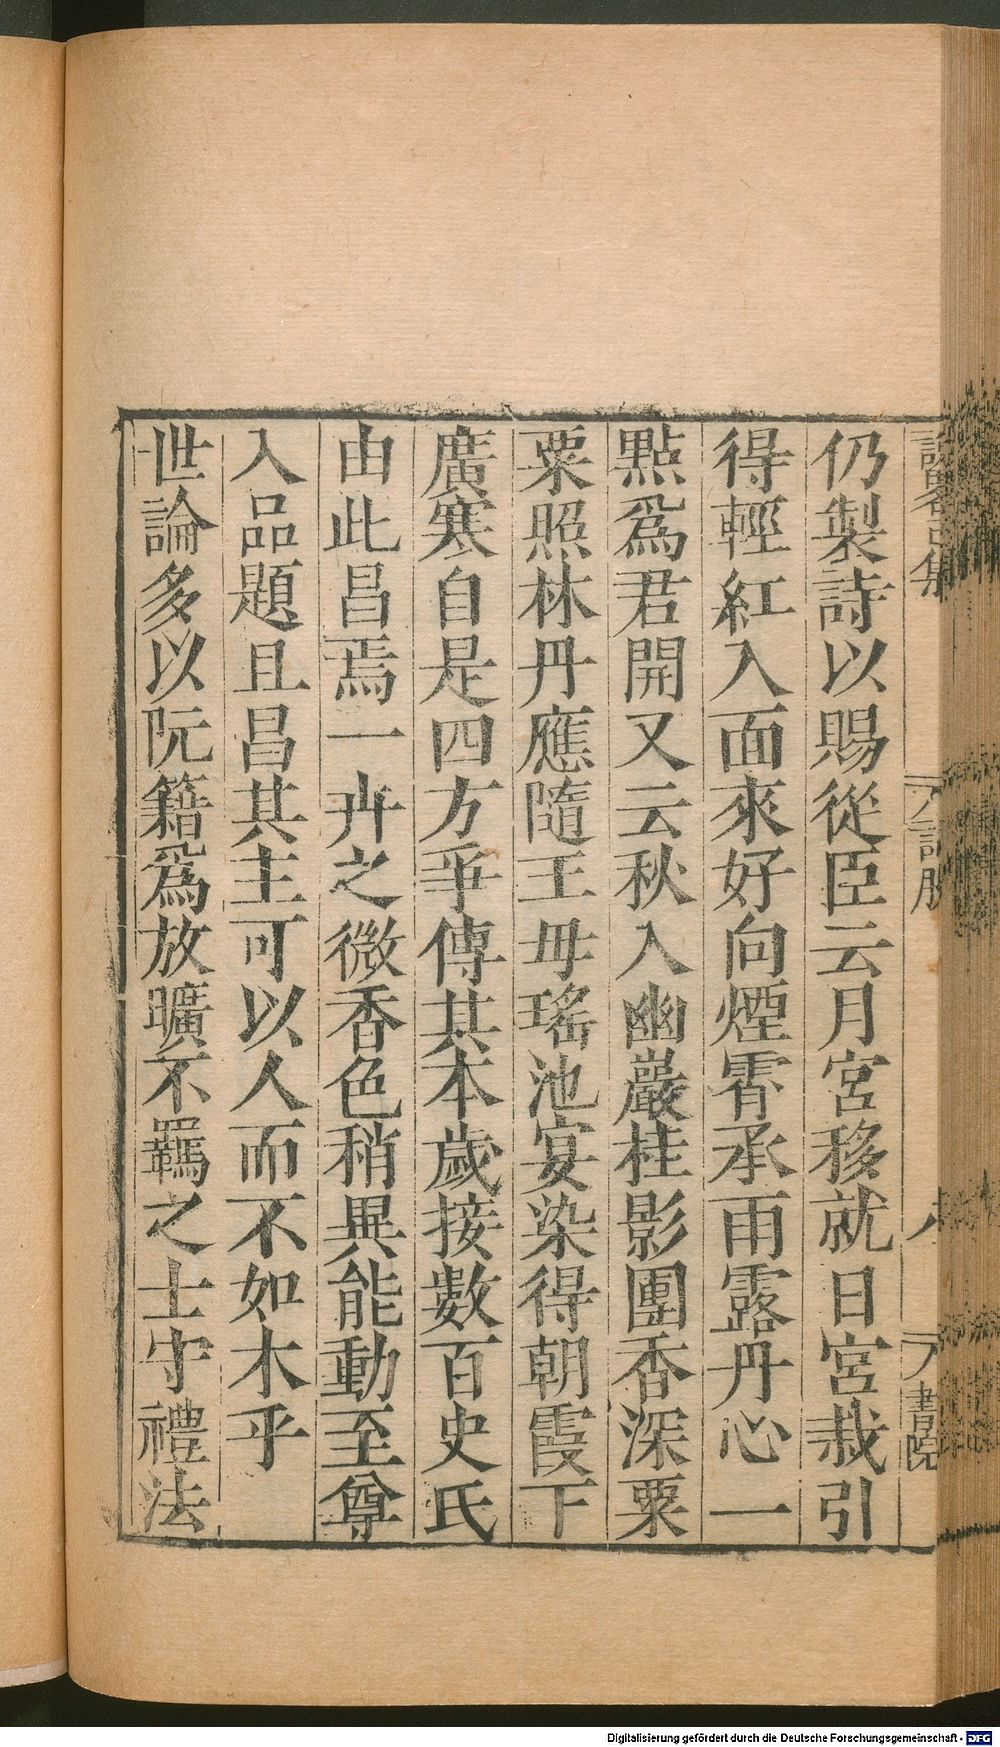 仍製詩以賜從臣云月宮移就日宮栽引
得輕紅入面來好向煙霄承雨露丹心一
點爲君開又云秋入幽巖桂影團香深粟
粟照林丹應隨王母瑤池宴染得朝霞下
廣寒自是四方爭傳其本歲接數百史氏
由此昌焉一卉之微香色稍異能動至尊
入品題且昌其主可以人而不如木乎
世論多以阮籍爲放曠不羈之士守禮法
書院
Digitalisierung gefördert durch die Deutsche Forschungsgemeinschaft - DFG